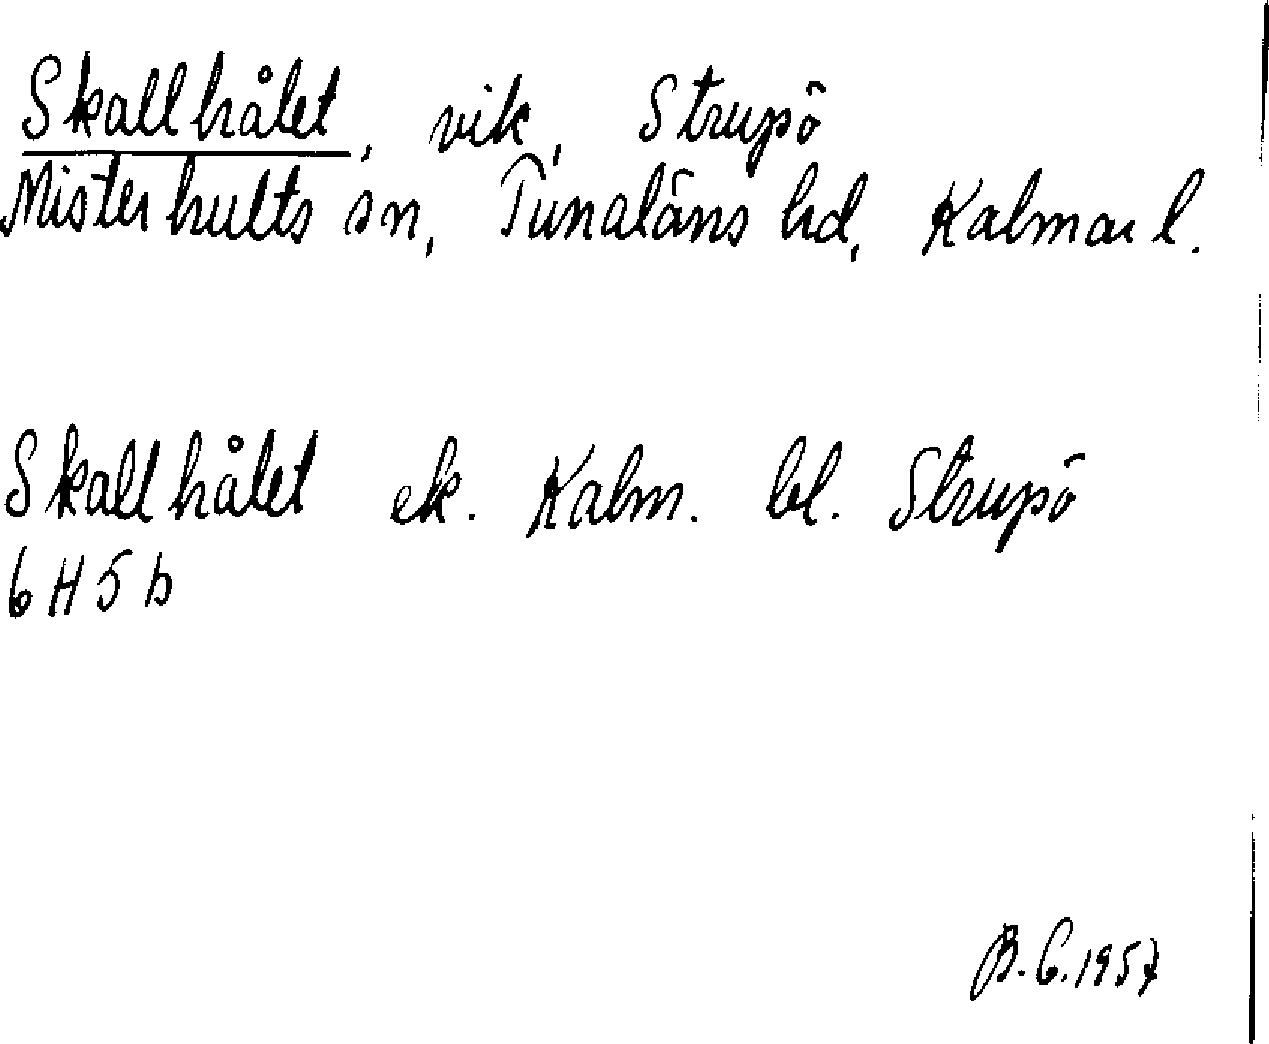 Skallhålet, vik, Strupö
Misterhults sn, Tunaläns hd, Kalmar l.
Skallhålet ek. Kalm. bl. Strupö
6H5b
B.G.1957